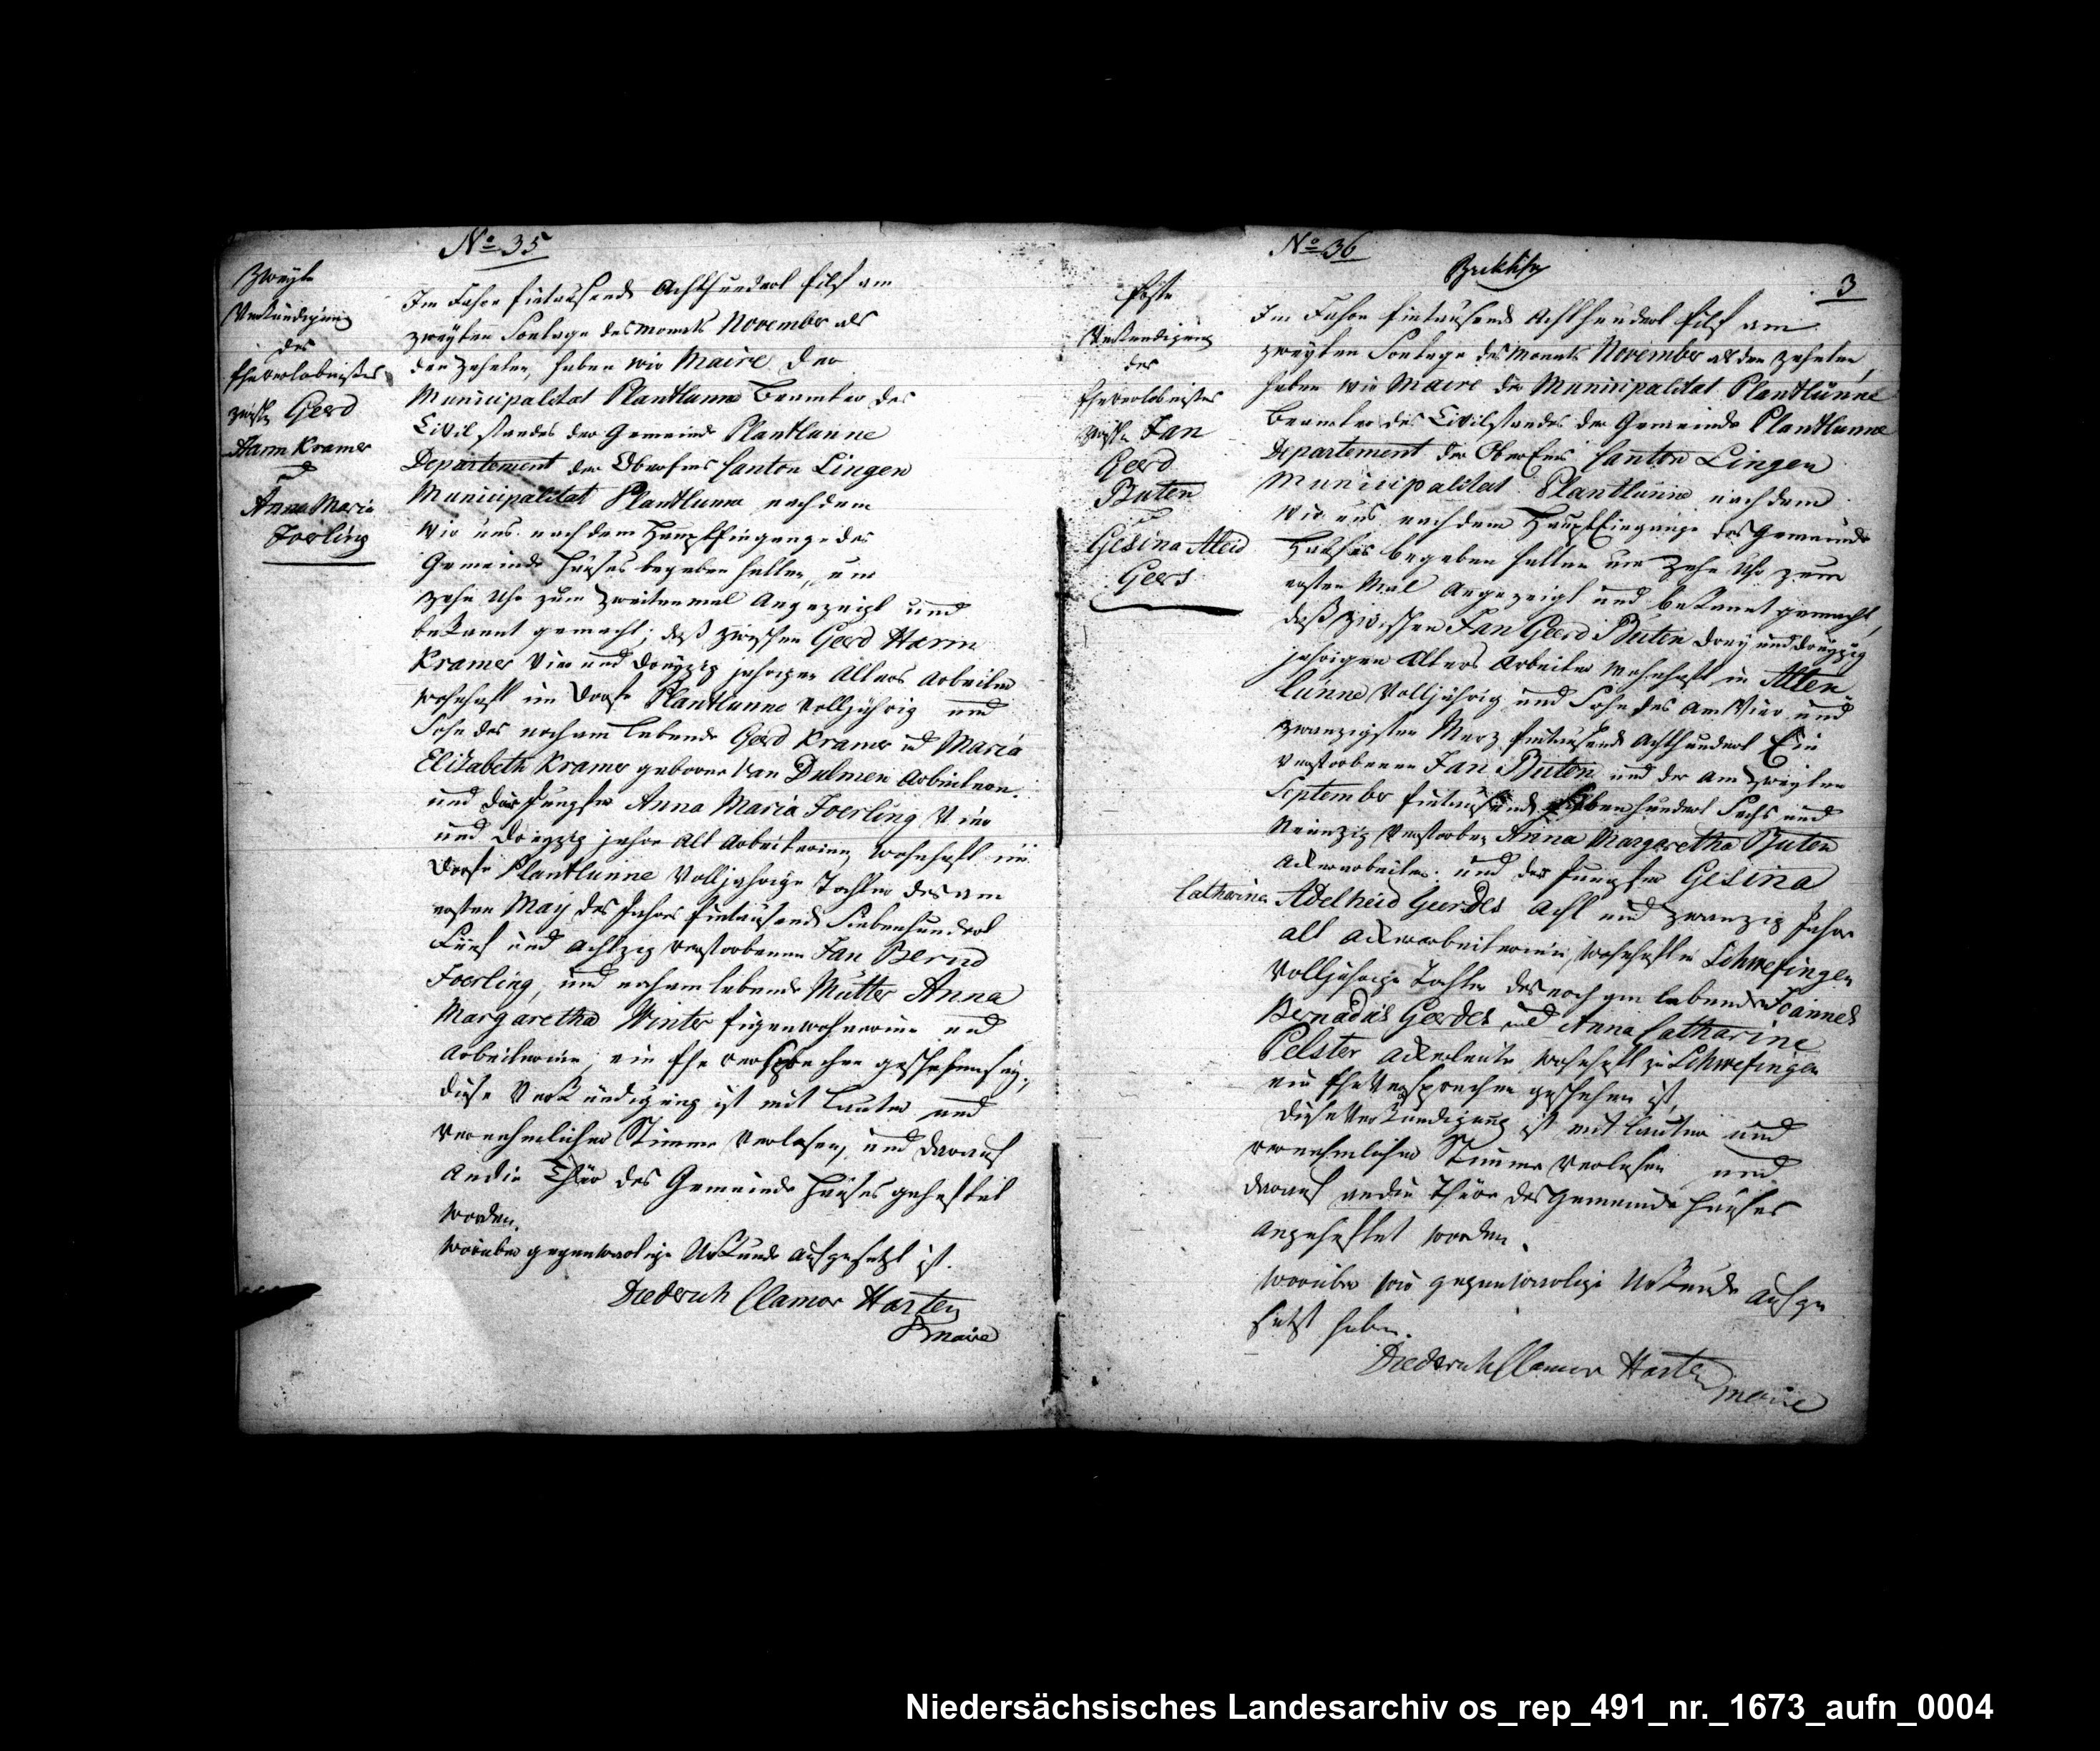 No 35
Zweyte
Verkündigung
des
Eheverlöbnißes
zwischn Gerd
Harm Kramer
und
Anna Maria
Joerling
Im Jahre Eintausend Achthundert Eilf am
zweyten Sontage des Monats November als
den Zehnten, haben wir Maire der
Municipalitat Plantlunne Beamter des
Civilstandes der Gemeinde Plantlunne
Departement der Oberems Canton Lingen
Municipalitat Plantlunne nachdem
wir uns nach dem Haupteingange des
Gemeinde Hauses begeben hatten, um
zehn Uhr zum Zweitenmal Angezeigt und
bekannt gemacht, daß zwischen Gerd Harm
Kramer Vier und dreyzig jahrigen Alters Arbeiter
wohnhaft im Dorfe Plantlunne Volljährig und
Sohn des noch am Lebende Gerd Kramer ud Maria
Elisabeth Kramer geborne Van Dulmen Arbeitern.
und der Jungfer Anna Maria Joerling Vier
und dreyzig jahre Alt Arbeiterinn, wohnhaft im
Dorfe Plantlunne Volljahrige Tochter des am
ersten May des Jahres Eintausend Siebenhundert
Fünf und Achtzig verstorbenen Jan Bernd
Joerling, und noch am lebende Mutter Anna
Margaretha Winter Eigenwohnerinn und
Arbeiterinn, ein Ehe versprechen geschehen sey,
diese Verkündigung ist mit lauter und
vernehmlicher Stimme Verlesen, und darauf
an die Thür des Gemeinde Hauses geheftet
worden.
worüber gegenwartige Urkunde aufgesetzt ist.
Diederich Clamor Harten
Maire
No 36
3
Erste
Verkündigung
des
Eheverlöbnißes
zwischn Jan
Gerd
Buten
und
Gesina Aleid
Geers
Im Jahre Eintausend Achthundert Eilf am
zweyten Sontage des Monats November als den Zehnten,
haben wir Maire der Municipalitat Plantlunne
Beamter des Civilstandes der Gemeinde Plantlunne
Departement der OberEms Canton Lingen
Municipalitat Plantlunne nachdem
wir uns nach dem Haupteingange des Gemeinde
Hauses begeben hatten um Zehn Uhr zum
ersten Mal Angezeigt und bekannt gemacht,
daß zwischen Jan Gerd Buten drey und dreyzig
jahrigen Alters Arbeiter wohnhaft in Alten
lunne Volljährig und Sohn des am Vier und
zwanzigsten Merz Eintausend Achthundert Ein
verstorbenen Jan Buten und der am Zweyten
September Eintausend Siebenhundert Sechs und
Neunzig Verstorben Anna Margaretha Buten
Ackerarbeiter. und der Jungfer Gesina
Catharina Adelheid Geerdes Acht und Zwanzig Jahre
alt Ackerarbeiterinn, wohnhaft in Schwefingen
Volljahrige Tochter des noch am lebende Joannes
Bernadus Geerdes und Anna Catharine
Pelster Ackerleute, wohnhaft zu Schwefingen
ein Ehe Versprechen geschehen ist,
diese Verkündigung ist mit lauter und
vernehmlicher Stimme Verlesen und
darauf an die Thüre des Gemeinde Hauses
angeheftet worden.
worüber wir gegenwartige Urkunde aufge
setzt haben.
Diederich Clamor Harten
maire
Niedersächsisches Landesarchiv os_rep_491_nr._1673_aufn_0004